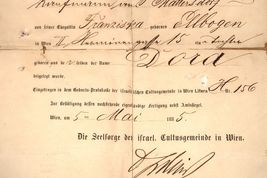 Kaufmann in Mattersdorf
von seiner Ehegattin Franziska gebornen Ellbogen
in Wien II 15
Dora
geboren und de selben der Name
beigelegt wurde.
Eingetragen in dem Geburts-Protokolle der israelitischen Cultusgemeinde in Wien Littera H Nr 156
Zur Bestätigung dessen nachstehende eigenhändige Fertigung nebst Amtssiegel.
Wien, am 5 Mai 1885.
Die Seelsorge der israel. Cultusgemeinde in Wien.